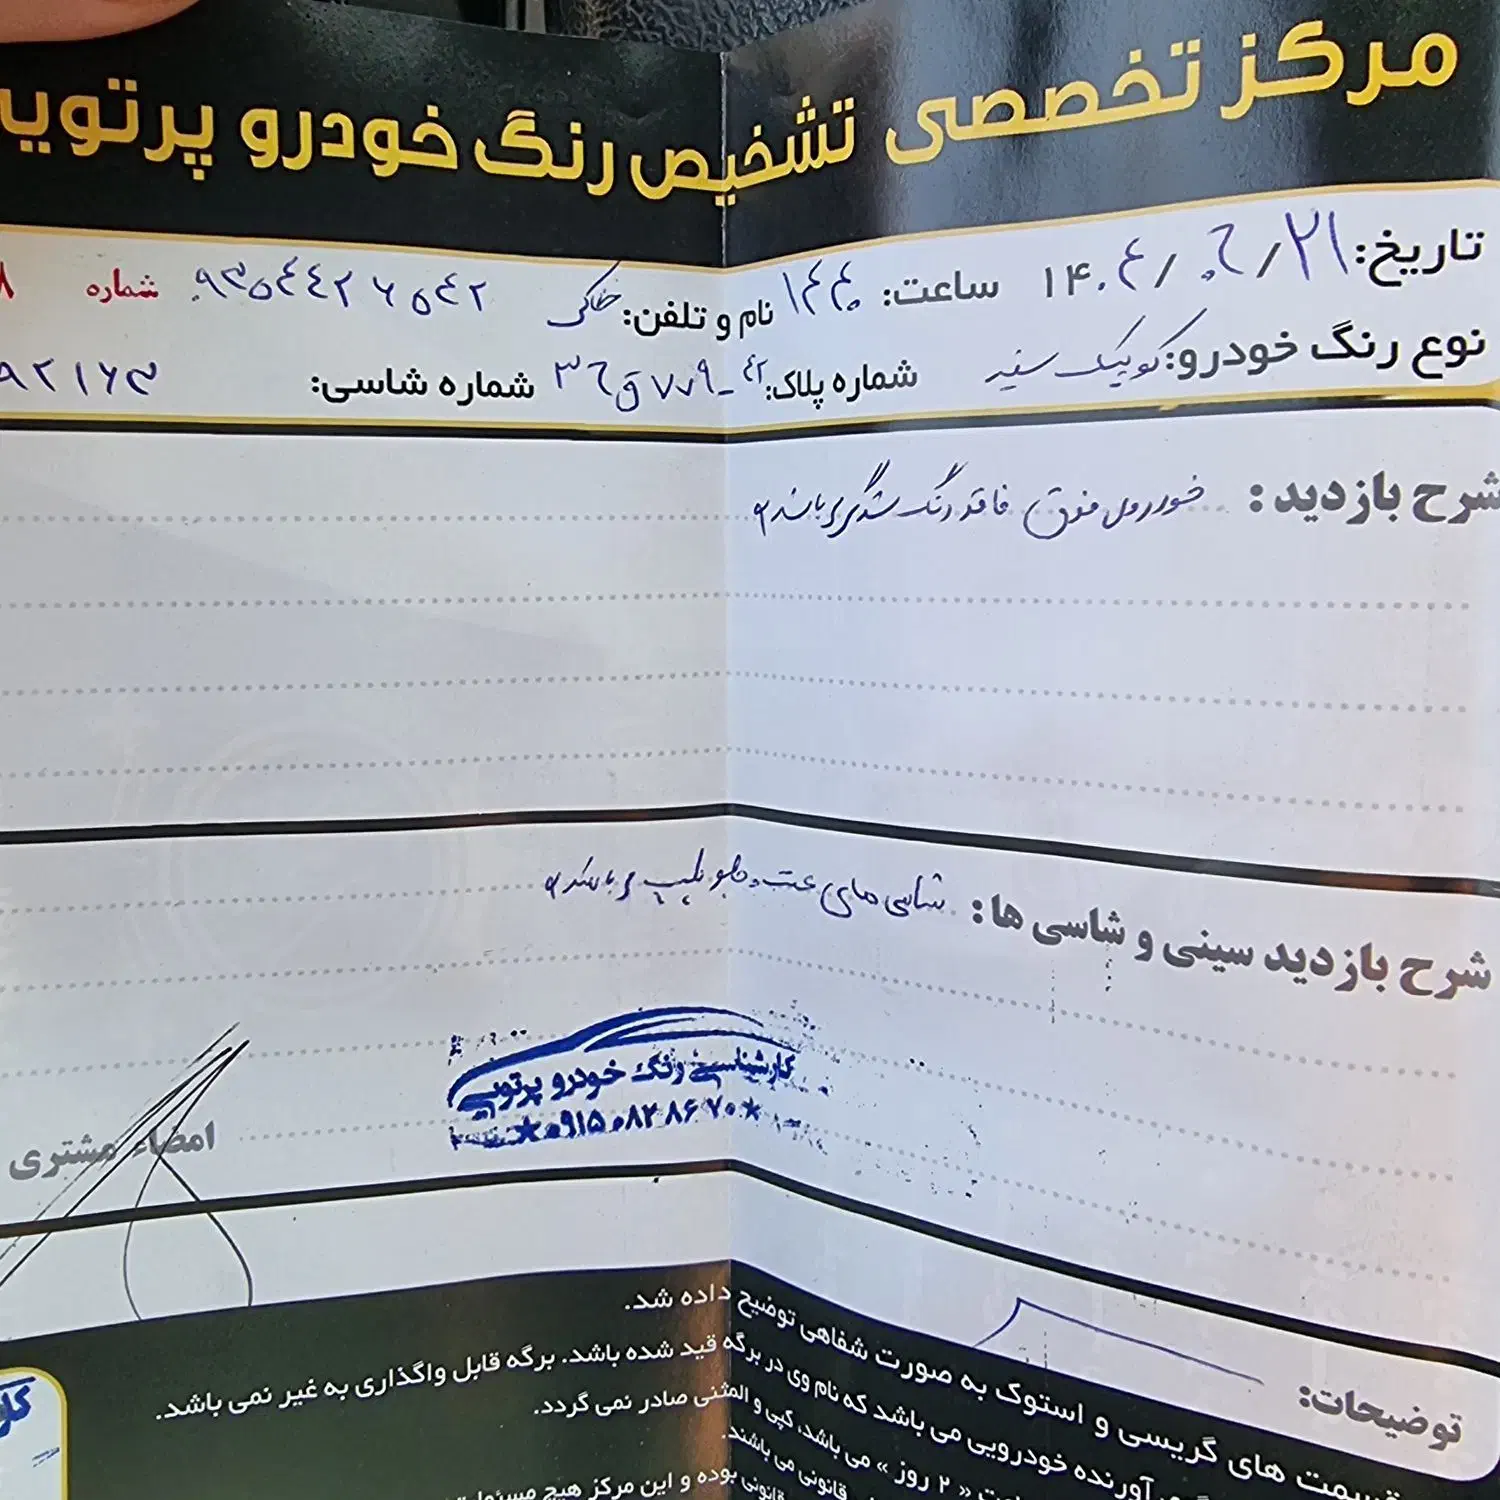 مرکز تخصصی تشخیص رنگ خودرو پرتویی
تاریخ: ۱۴۰۴/۰۶/۲۱ ساعت: نام و تلفن: خاکی ۰۹۳۵۴۴۲۶۵۴۲ شماره ۸
نوع رنگ خودرو: کوییک سفید شماره پلاک: ۴۲ - ۷۷۹ ق ۳۶ شماره شاسی: ۹۲۱۶۳
شرح بازدید: خودروی فوق فاقد رنگ شدگی می باشد
شرح بازدید سینی و شاسی ها: شاسی های عقب و جلو پلمپ می باشد
کارشناسی رنگ خودرو پرتویی
۰۹۱۵۰۸۲۸۶۷۰
امضاء مشتری
توضیحات:
قسمت های گریسی و استوک به صورت شفاهی توضیح داده شد.
آورنده خودرویی می باشد که نام وی در برگه قید شده باشد. برگه قابل واگذاری به غیر نمی باشد.
« ۲ روز » می باشد، کپی و المثنی صادر نمی گردد.
قانونی می باشند.
قانونی بوده و این مرکز هیچ